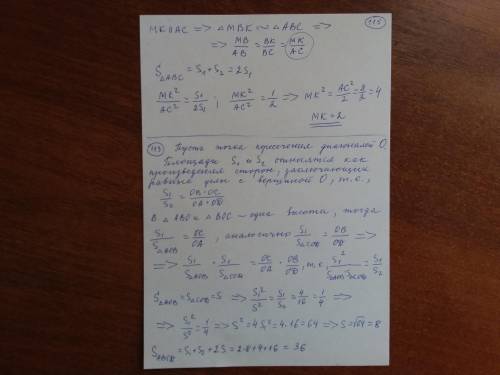 115
MK∥AC => △MBK ∼ △ABC =>
=> MB/AB = BK/BC = MK/AC
S△ABC = S1 + S2 = 2S1
MK²/AC² = S1/2S1 ; MK²/AC² = 1/2 => MK² = AC²/2 = 8/2 = 4
MK = 2
Пусть точка пересечения диагоналей O.
Площади S1 и S2 относятся как
произведения сторон, заключающих
равные углы с вершиной O, т.е.,
S1/S2 = OB·OC/OA·OD
В △ABO и △BOC - одна высота, тогда
S1/S△AOB = OC/OA , аналогично S1/S△COD = OB/OD =>
=> S1/S△AOB · S1/S△COD = OC/OA · OB/OD, т.е. S1²/S△AOB·S△COD = S1/S2
S△AOB = S△COD = S => S1²/S² = S1/S2 = 4/16 = 1/4 =>
=> S1²/S² = 1/4 => S² = 4S1² = 4·16 = 64 => S = √64 = 8
= S1 + S2 + 2S = 2·8 + 4 + 16 = 36